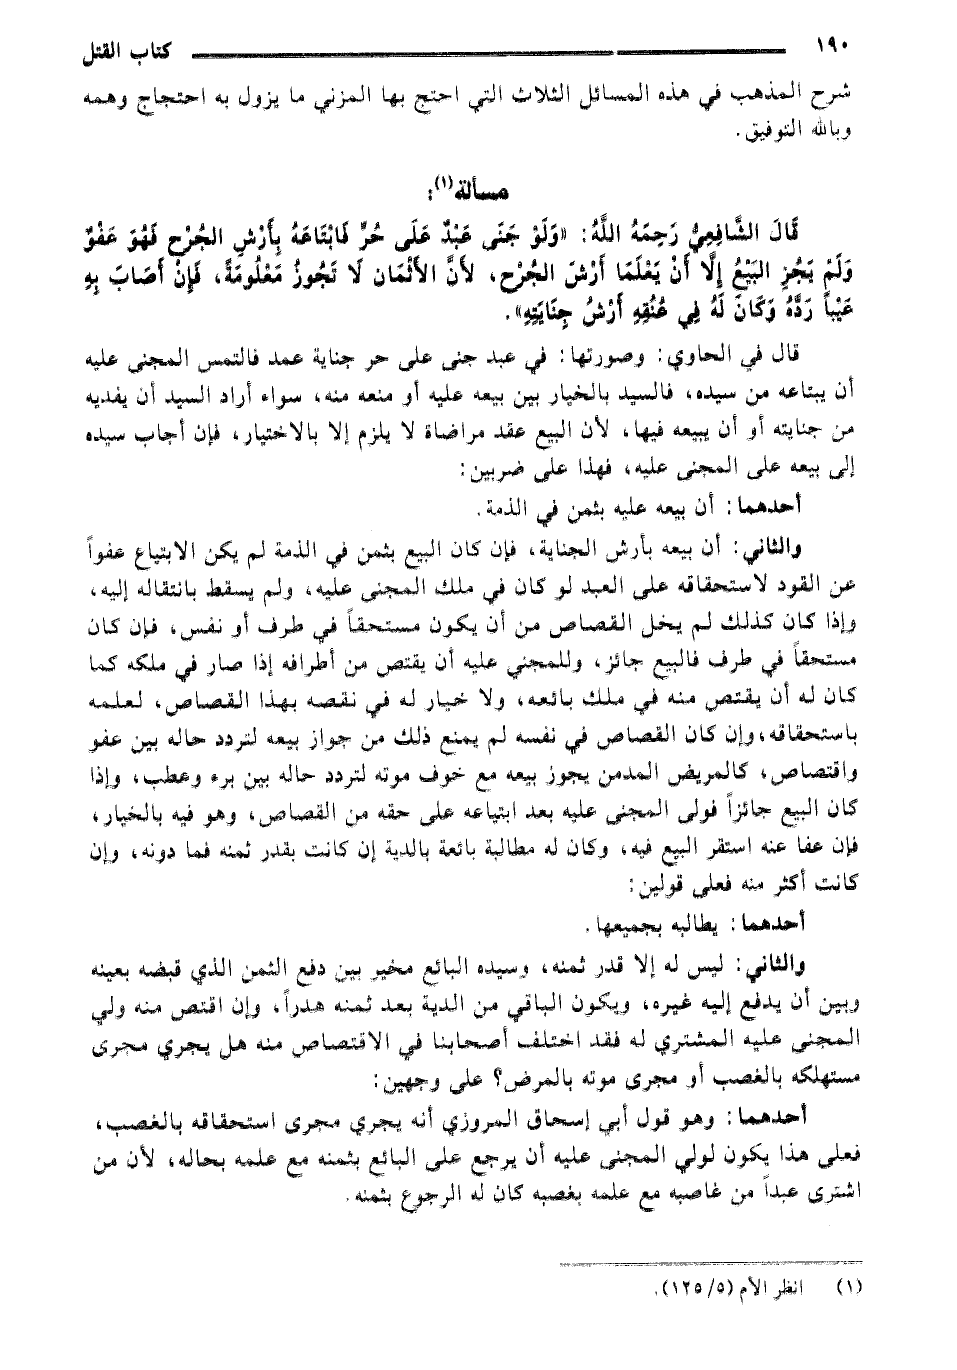 ١٩٠ كتاب القتل
شرح المذهب في هذه المسائل الثلاث التي احتج بها المزني ما يزول به احتجاج وهمه
وبالله التوفيق.
مسألة(١):
قَالَ الشَّافِعِيُّ رَحِمَهُ اللَّهُ: «وَلَوْ جَنَى عَبْدٌ عَلَى حُرٍّ فَابْتَاعَهُ بِأَرْشِ الجُرْحِ فَهُوَ عَفْوٌ
وَلَمْ يَجُزِ البَيْعُ إِلَّا أَنْ يَعْلَمَا أَرْشَ الجُرْحِ، لأَنَّ الأَثْمَان لَا تَجُوزُ مَعْلُومَةً، فَإِنْ أَصَابَ بِهِ
عَيْباً رَدَّهُ وَكَانَ لَهُ فِي عُنُقِهِ أَرْشُ جِنَايَتِهِ».
قال في الحاوي: وصورتها: في عبد جنى على حر جناية عمد فالتمس المجنى عليه
أن يبتاعه من سيده، فالسيد بالخيار بين بيعه عليه أو منعه منه، سواء أراد السيد أن يفديه
من جنايته أو أن يبيعه فيها، لأن البيع عقد مراضاة لا يلزم إلا بالاختيار، فإن أجاب سيده
إلى بيعه على المجنى عليه، فهذا على ضربين:
أحدهما: أن بيعه عليه بثمن في الذمة.
والثاني: أن بيعه بأرش الجناية، فإن كان البيع بثمن في الذمة لم يكن الابتياع عفواً
عن القود لاستحقاقه على العبد لو كان في ملك المجنى عليه، ولم يسقط بانتقاله إليه،
وإذا كان كذلك لم يخل القصاص من أن يكون مستحقاً في طرف أو نفس، فإن كان
مستحقاً في طرف فالبيع جائز، وللمجني عليه أن يقتص من أطرافه إذا صار في ملكه كما
كان له أن يقتص منه في ملك بائعه، ولا خيار له في نقصه بهذا القصاص، لعلمه
باستحقاقه،وإن كان القصاص في نفسه لم يمنع ذلك من جواز بيعه لتردد حاله بين عفو
واقتصاص، كالمريض المدمن يجوز بيعه مع خوف موته لتردد حاله بين برء وعطب، وإذا
كان البيع جائزاً فولى المجنى عليه بعد ابتياعه على حقه من القصاص، وهو فيه بالخيار،
فإن عفا عنه استقر البيع فيه، وكان له مطالبة بائعة بالدية إن كانت بقدر ثمنه فما دونه، وإن
كانت أكثر منه فعلى قولين:
أحدهما: يطالبه بجميعها.
والثاني: ليس له إلا قدر ثمنه، وسيده البائع مخير بين دفع الثمن الذي قبضه بعينه
وبين أن يدفع إليه غيره، ويكون الباقي من الدية بعد ثمنه هدراً، وإن اقتص منه ولي
المجنى عليه المشتري له فقد اختلف أصحابنا في الاقتصاص منه هل يجري مجرى
مستهلكه بالغصب أو مجرى موته بالمرض؟ على وجهين:
أحدهما: وهو قول أبي إسحاق المروزي أنه يجري مجرى استحقاقه بالغصب،
فعلى هذا يكون لولي المجنى عليه أن يرجع على البائع بثمنه مع علمه بحاله، لأن من
اشترى عبداً من غاصبه مع علمه بغصبه كان له الرجوع بثمنه.
(١) انظر الأم (١٢٥/٥).